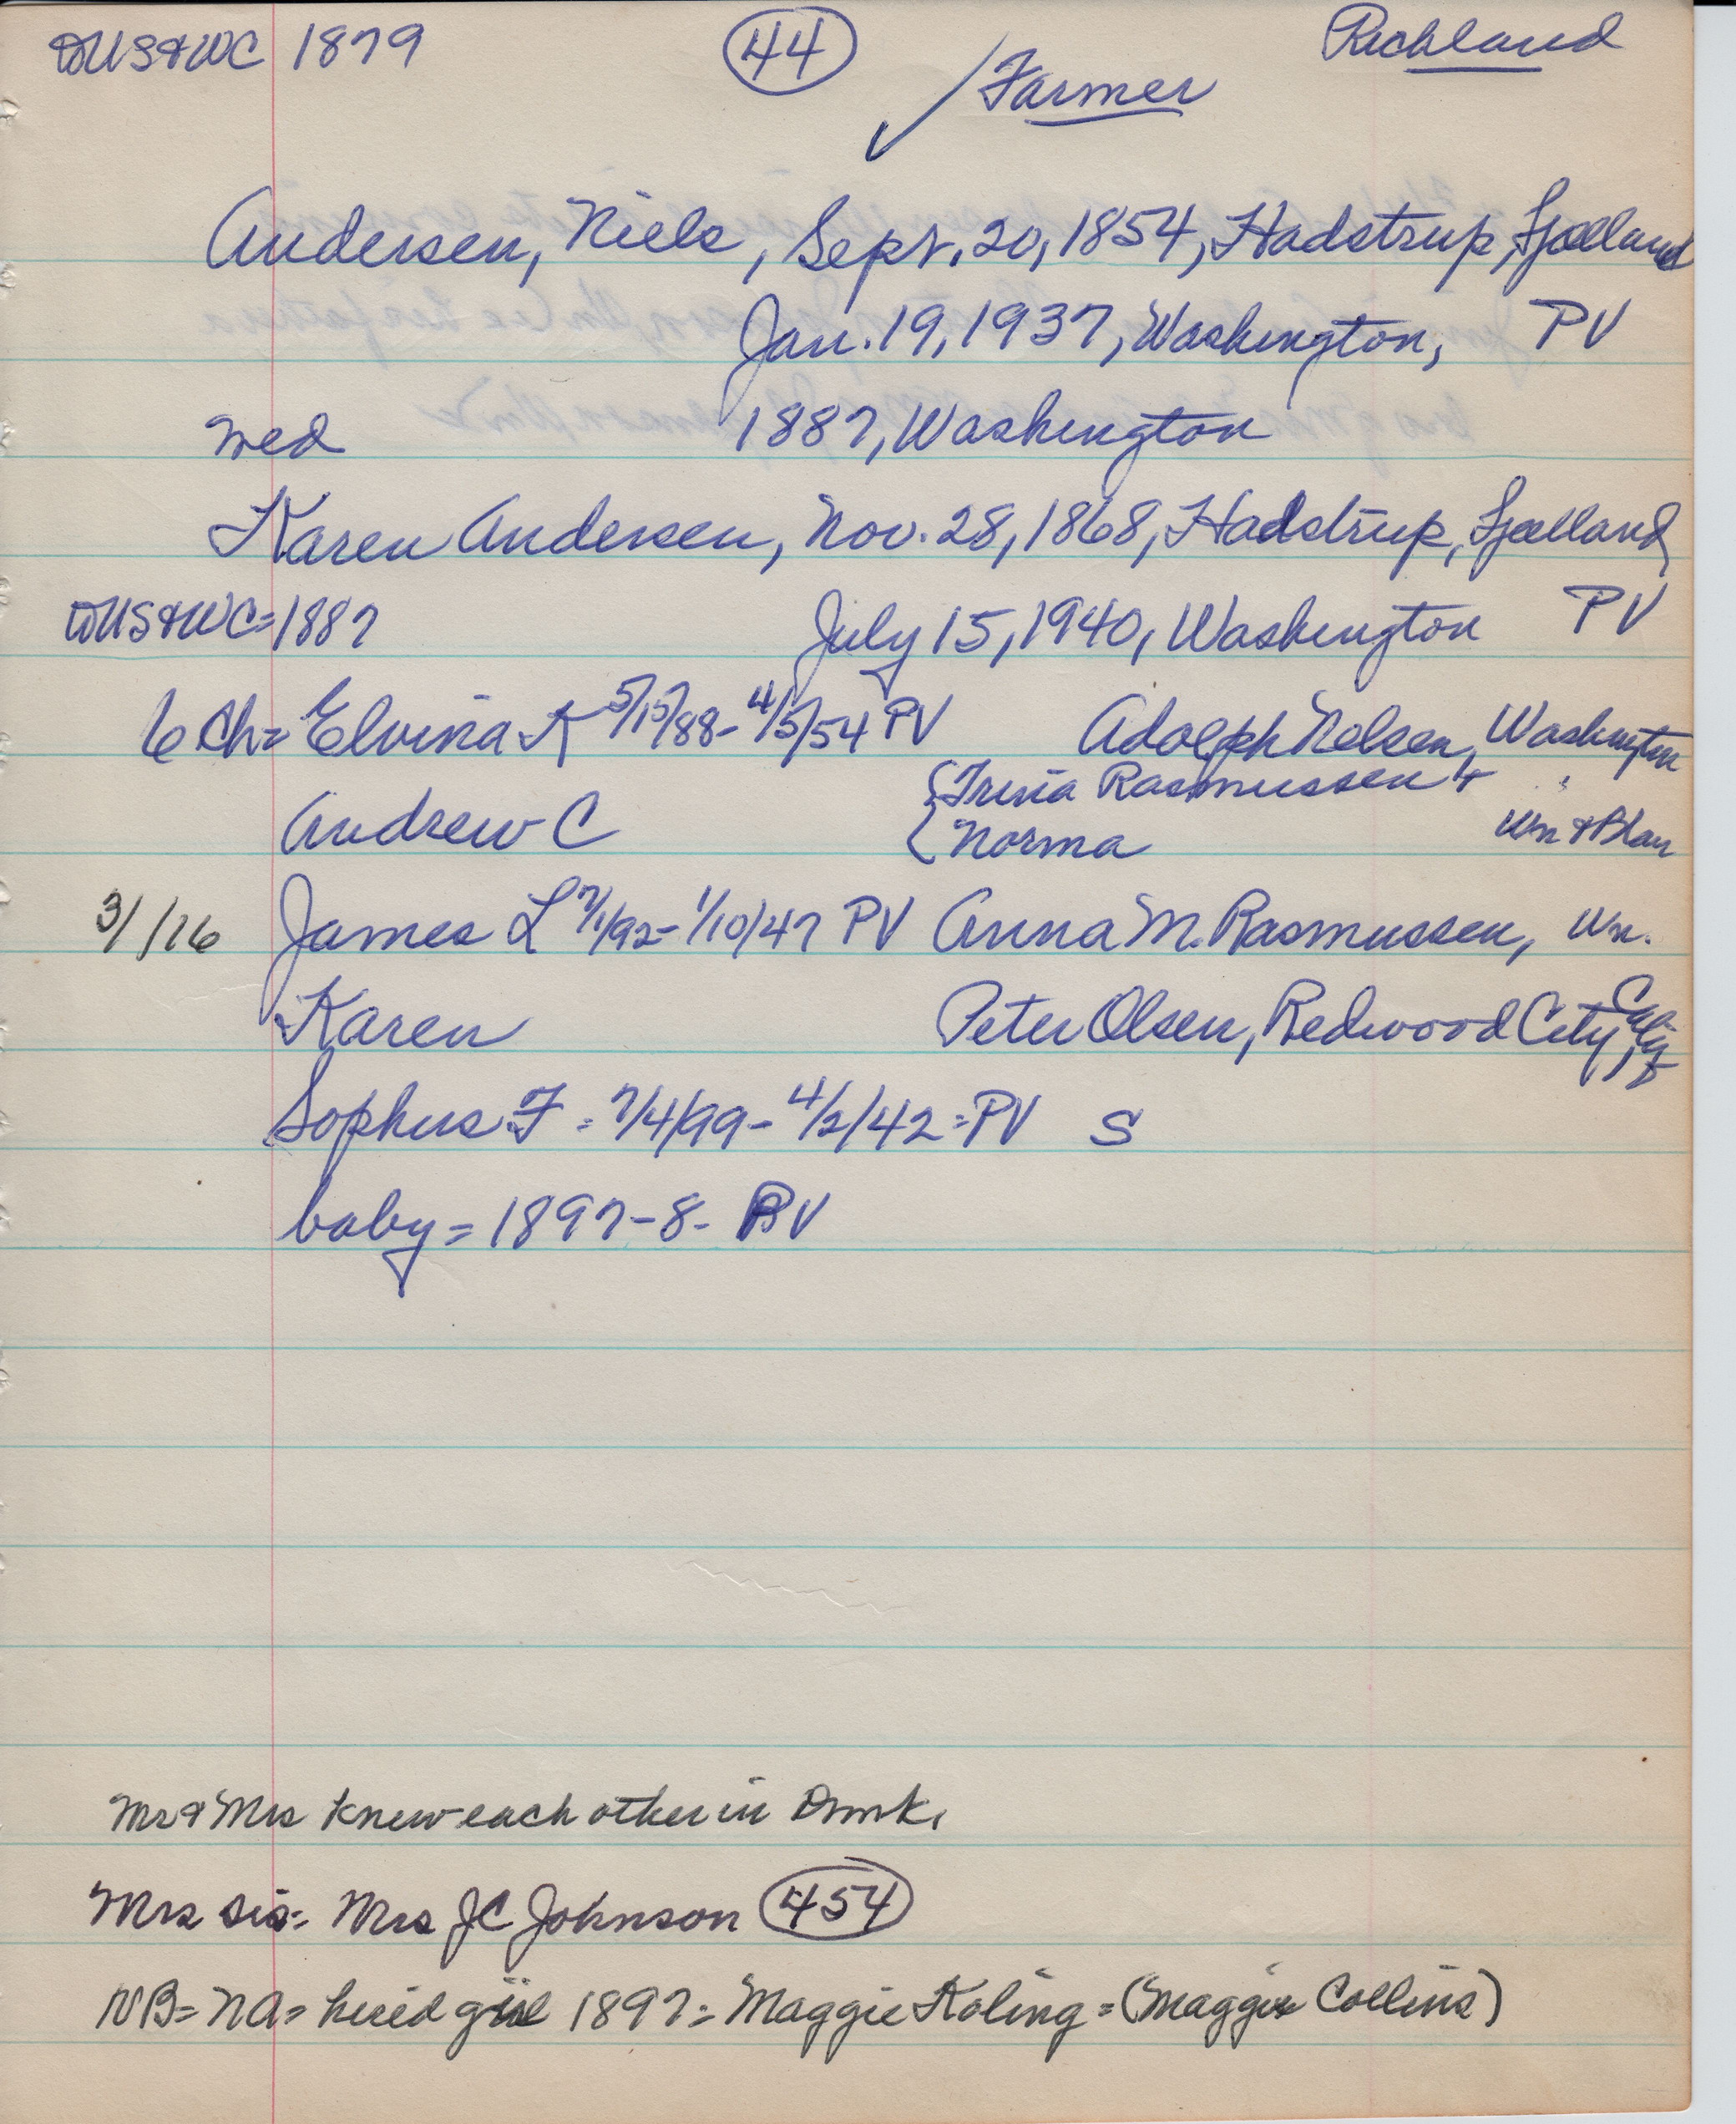 DUS&WC 1879 44 Richland
✓ Farmer
Andersen, Niels, Sept. 20, 1854, Hadstrup, Sjælland
Jan. 19, 1937, Washington, PV
wed 1887, Washington
Karen Andersen, Nov. 28, 1868, Hadstrup, Sjælland
DUS&WC=1887 July 15, 1940, Washington PV
6 Ch= Elvina K 5/15/88-4/5/54 PV Adolph Nelsen, Washington
{Trena Rasmussen + "
Andrew C {Norma Wn & Blair
3/1/16 James L 7/1/92-1/10/47 PV Anna M. Rasmussen, Wn.
Karen Peter Olsen, Redwood City, Calif
Sophus F = 7/4/99-4/2/42=PV S
baby = 1897-8- PV
Mr & Mrs knew each other in Dnmk.
Mrs sis= Mrs JC Johnson 454
NB= NA= hired girl 1897= Maggie Koling = (Maggie Collins)